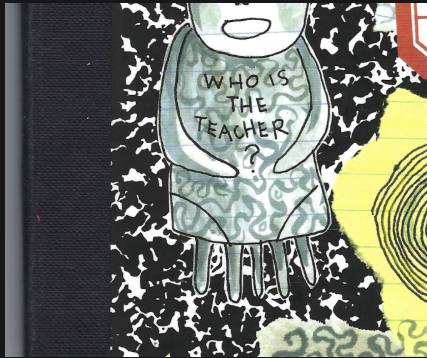 WHO IS
THE
TEACHER
?